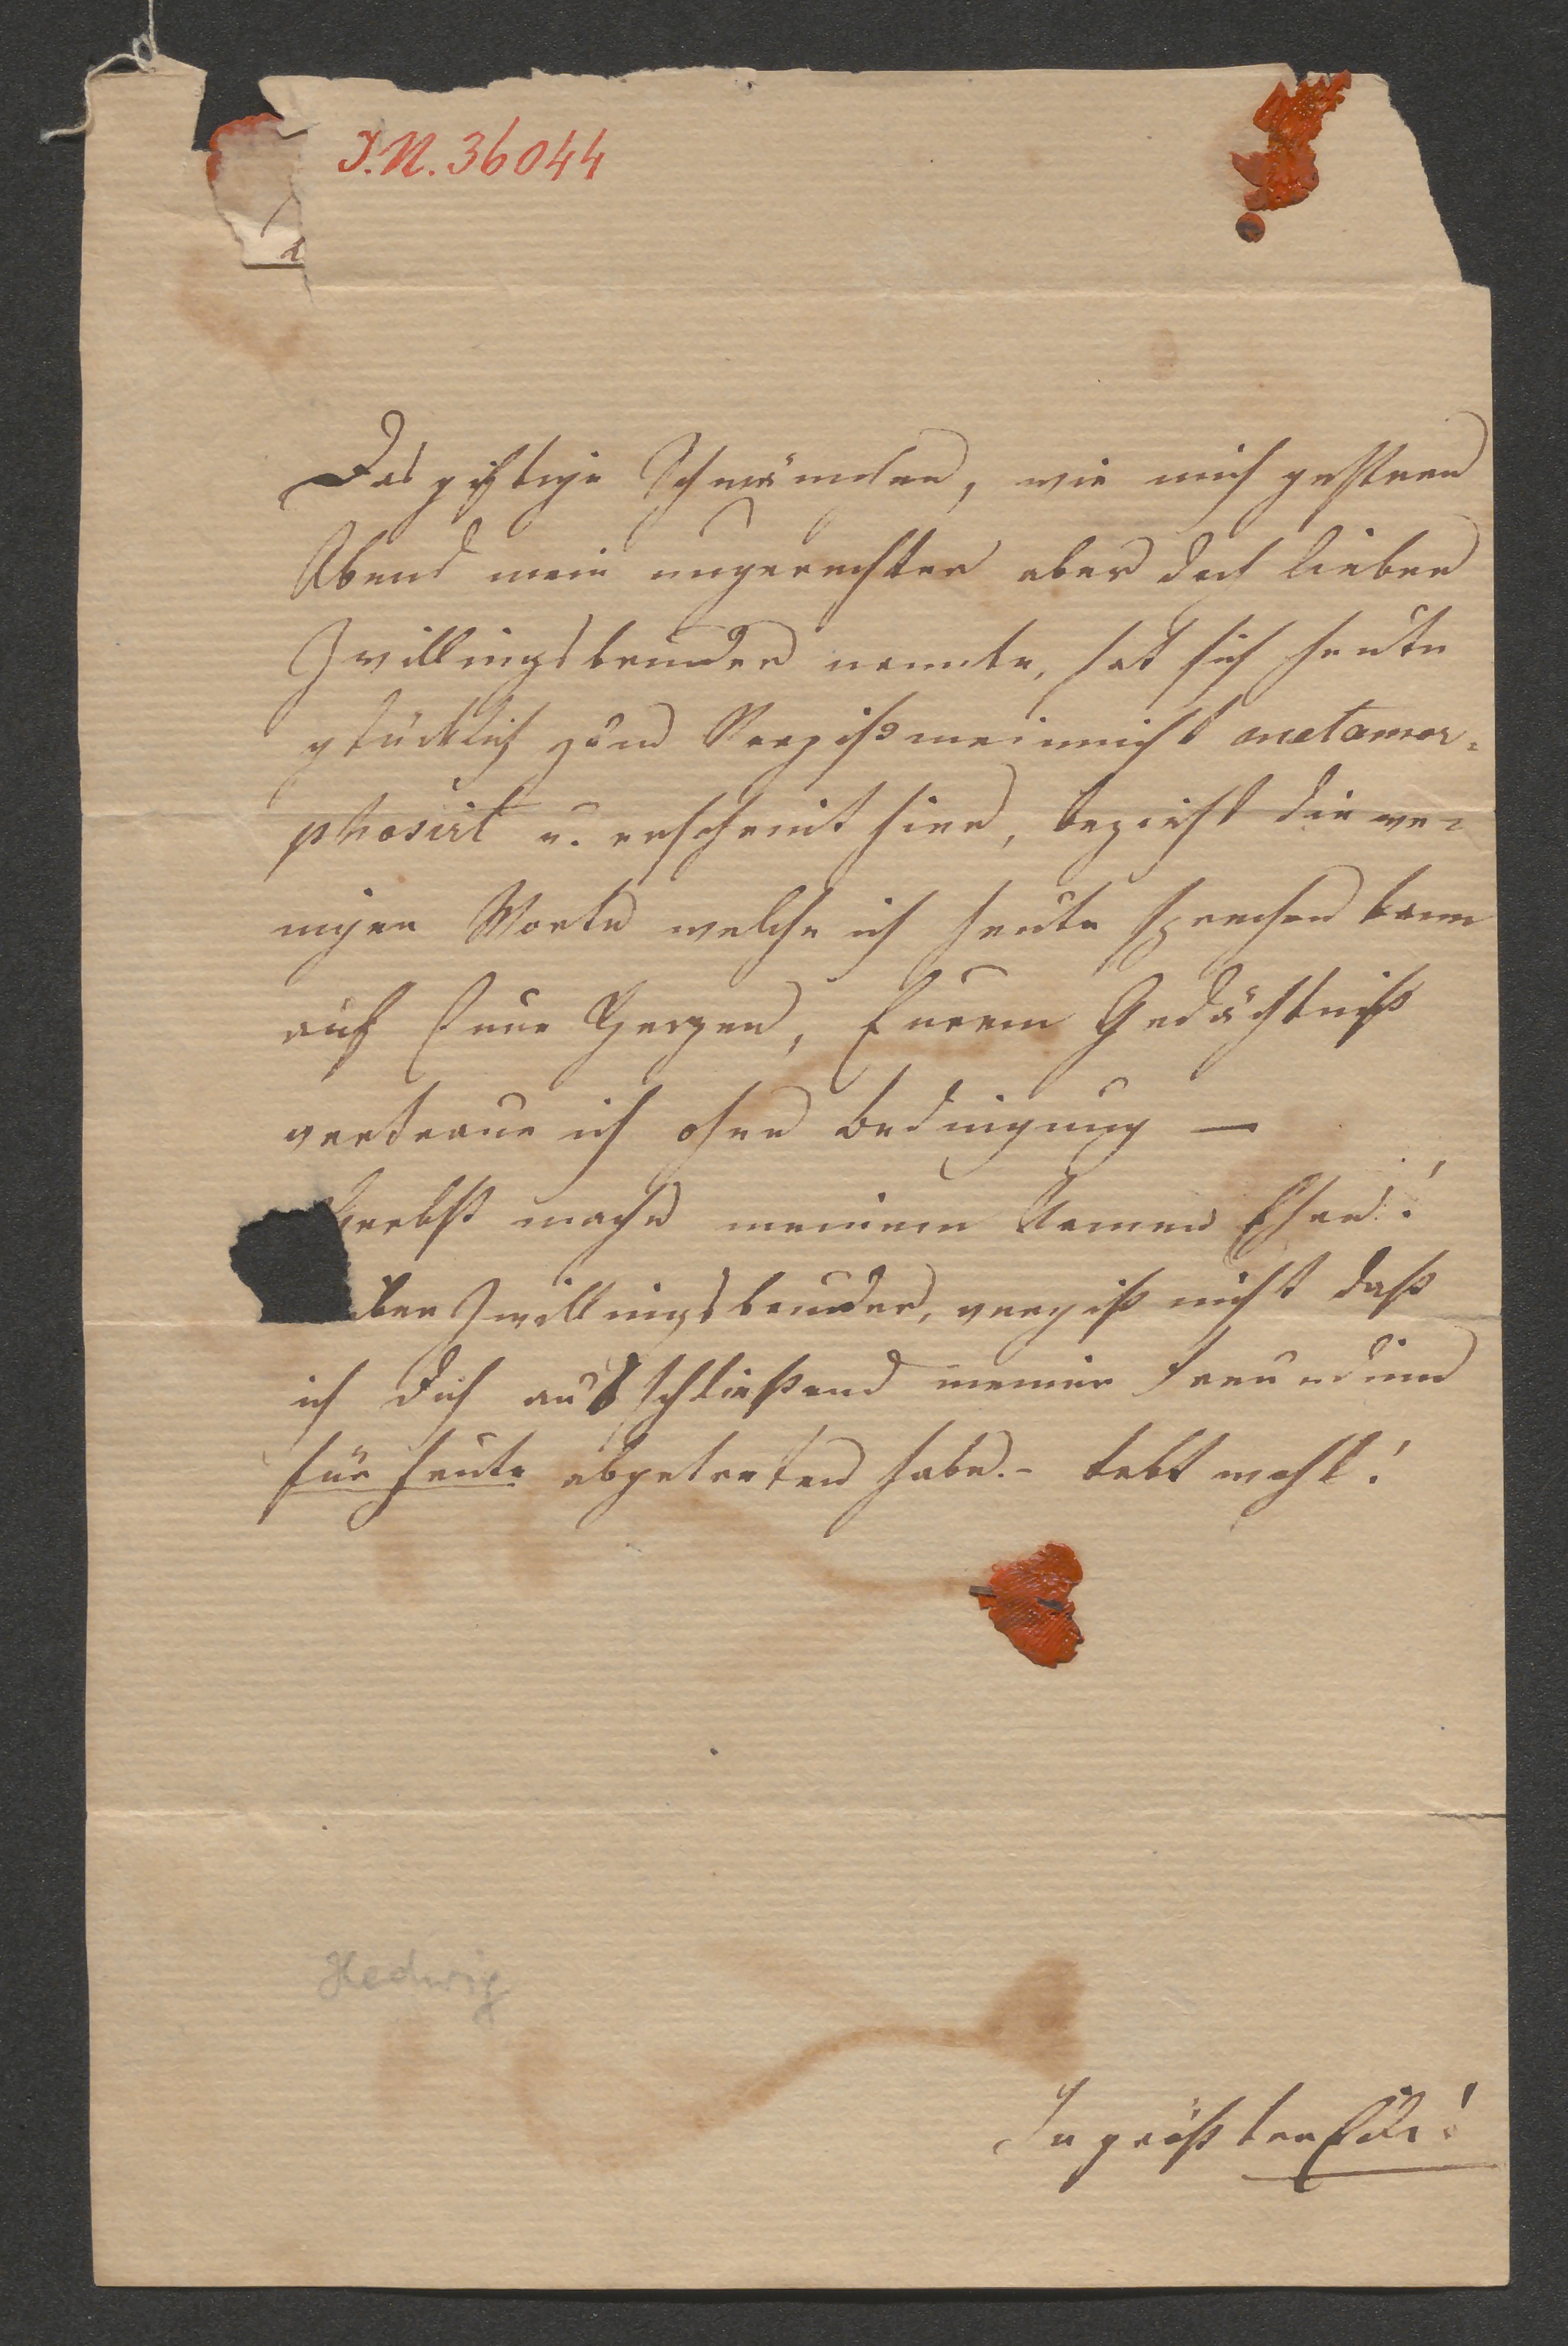 I.N. 36044
Das giftige Schwämchen, wie mich gestern
Abend mein ungerechter aber doch lieber
Zwillingsbruder nannte, hat sich heute
glücklich zum Vergißmeinnicht metamor-
phosirt u. erscheint hier, bezieht die we-
nigen Worte welche ich heute sprechen kann
auf Eure Herzen, Eurem Gedächtniß
vertraue ich ohne Bedingung —
mache meinem Namen Ehre!
ber Zwillingsbruder, vergiß nicht daß
ich Dich ausschließend meiner Freundinn
für heute abgetreten habe. - Lebt wohl!
Hedwig
In größter Eile!